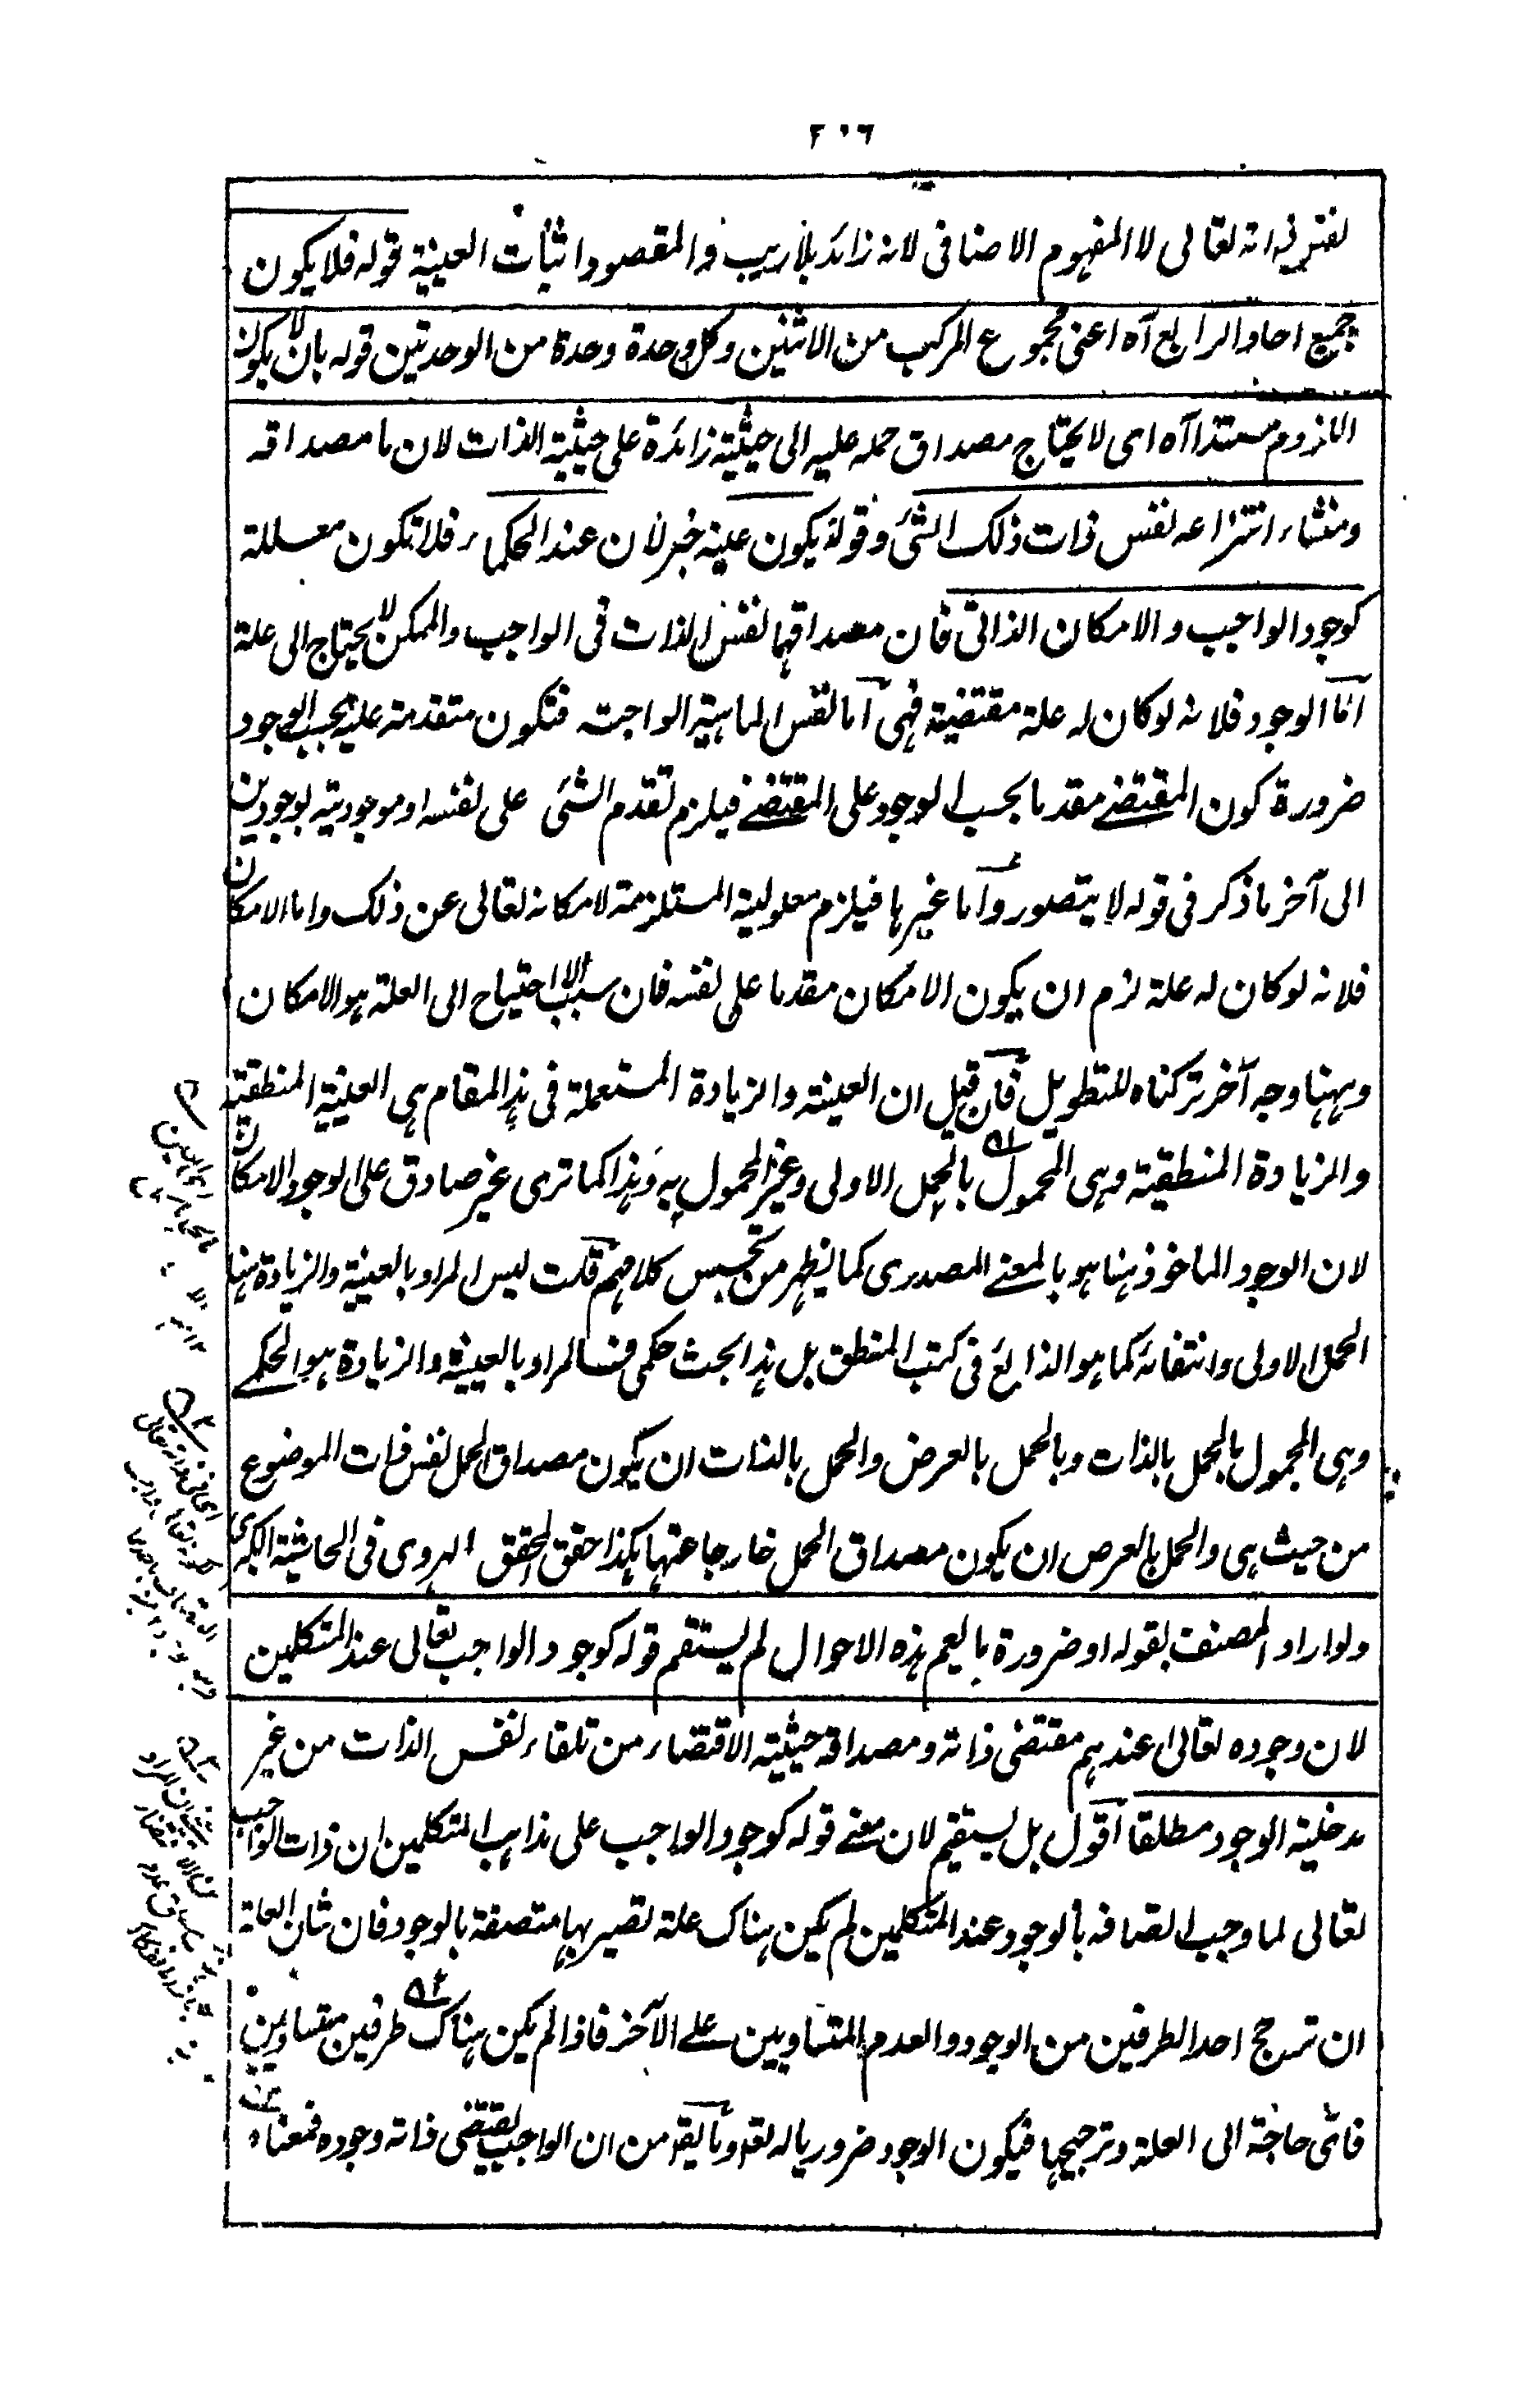 ٢٠٦
لنفس ذاته تعالى لا المفهوم الاضافى لانه زائد بلا ريب والمقصود اثبات العينية قوله فلا يكون
جميع احاد الرابع آه اعنى مجموع المركب من الاثنين وكل وحدة وحدة من الوحدتين قوله بان لا يكون
اللزوم مستندا آه اى لا يحتاج مصداق حمله عليه الى حيثية زائدة على حيثية الذات لان ما مصداقه
ومنشاء انتزاعه نفس ذات ذلك الشئ وقوله يكون عينه خبر لان عند الحكماء فلا تكون معللة
كوجود الواجب والامكان الذاتى فان مصداقهما نفس الذات فى الواجب والممكن لا يحتاج الى علة
اما الوجود فلانه لو كان له علة مقتضية فهى اما نفس الماهية الواجبة فتكون متقدمة عليه بحسب الوجود
ضرورة كون المقتضے مقدما بحسب الوجود على المقتضے فيلزم تقدم الشئ على نفسه او موجوديته بوجودين
الى آخر ما ذكر فى قوله لا يتصور وآما غيرها فيلزم معلولية المستلزمة لامكانه تعالى عن ذلك واما الامكان
فلانه لو كان له علة لزم ان يكون الامكان مقدما على نفسه فان سبب الاحتياج الى العلة هو الامكان
وههنا وجه آخر تركناه للتطويل فان قيل ان العينية والزيادة المستعملة فى هذا المقام هى العينية المنطقية
والزيادة المنطقية وهى المحمول بالحمل الاولى وغير المحمول به وهذا كما ترى غير صادق على الوجود والامكان
لان الوجود الماخوذ هنا هو بالمعنے المصدرى كما يظهر من تجسس كلامهم قلت ليس المراد بالعينية والزيادة هنا
الحمل الاولى وانتفائه كما هو الذايع فى كتب المنطق بل هذا بحث حكمى فالمراد بالعينية والزيادة هو الحكمے
وهى المحمول بالحمل بالذات وبالحمل بالعرض والحمل بالذات ان يكون مصداق الحمل نفس ذات الموضوع
من حيث هى والحمل بالعرض ان يكون مصداق الحمل خارجا عنها هكذا حقق المحقق الهروى فى الحاشية الكبرى
ولو اراد المصنف بقوله او ضرورة ما يعم هذه الاحوال لم يستقم قوله كوجود الواجب تعالى عند المتكلمين
لان وجوده تعالى عندهم مقتضى ذاته ومصداقه حيثية الاقتضاء من تلقاء نفس الذات من غير
مدخلية الوجود مطلقا آقول بل يستقيم لان معنے قوله كوجود الواجب على مذاهب المتكلمين ان ذات الواجب
تعالى لما وجب اتصافه بالوجود عند المتكلمين لم يكن هناك علة تصير بها متصفة بالوجود فان شان العلة
ان ترجح احد الطرفين من الوجود والعدم المتساويين علے الآخر فاذا لم يكن هناك طرفين متساويين
فائ حاجة الى العلة وترجيحها فيكون الوجود ضروريا له تعالى وما يقع من ان الواجب يقتضى ذاته وجوده فمعناه